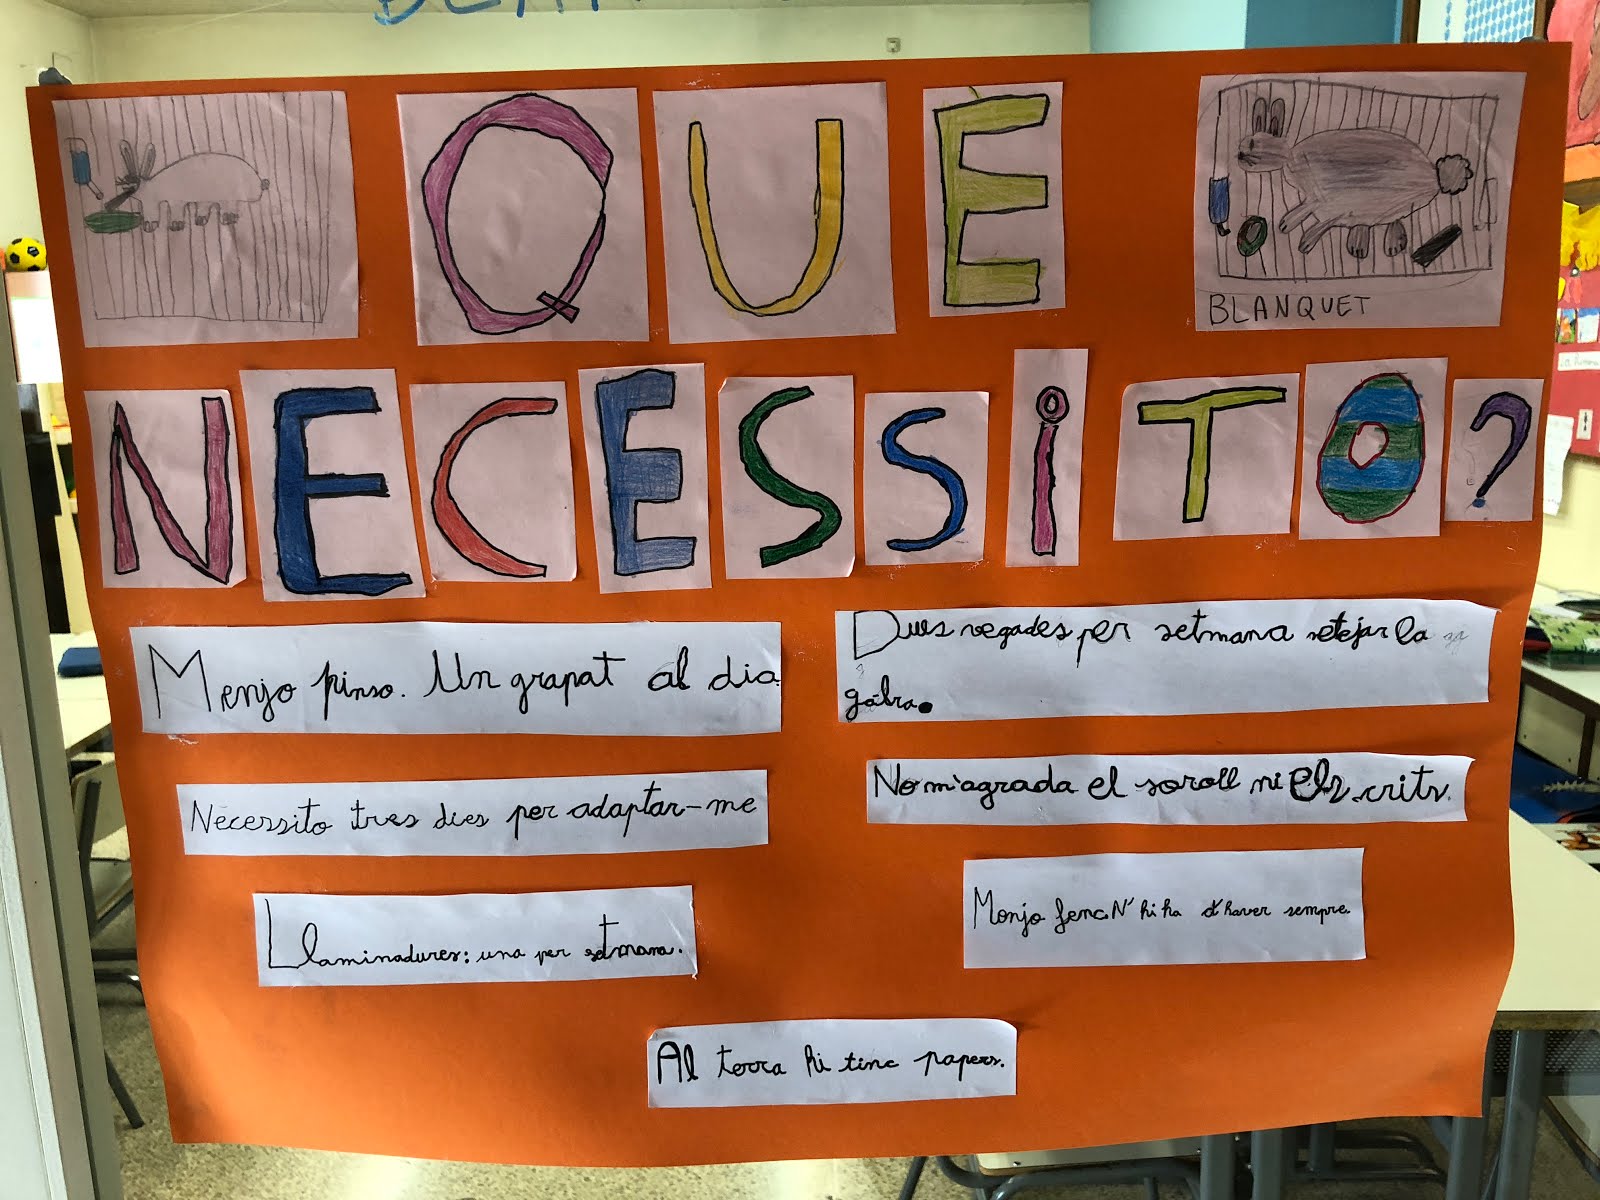 QUÈ
BLANQUET
NECESSITO?
Menjo pinso. Un grapat al dia.
Dues vegades per setmana netejar la
gàbia.
Necessito tres dies per adaptar-me
No m'agrada el soroll ni els crits.
Llaminadures: una per setmana.
Menjo fenc. N'hi ha d'haver sempre.
Al terra hi tinc papers.